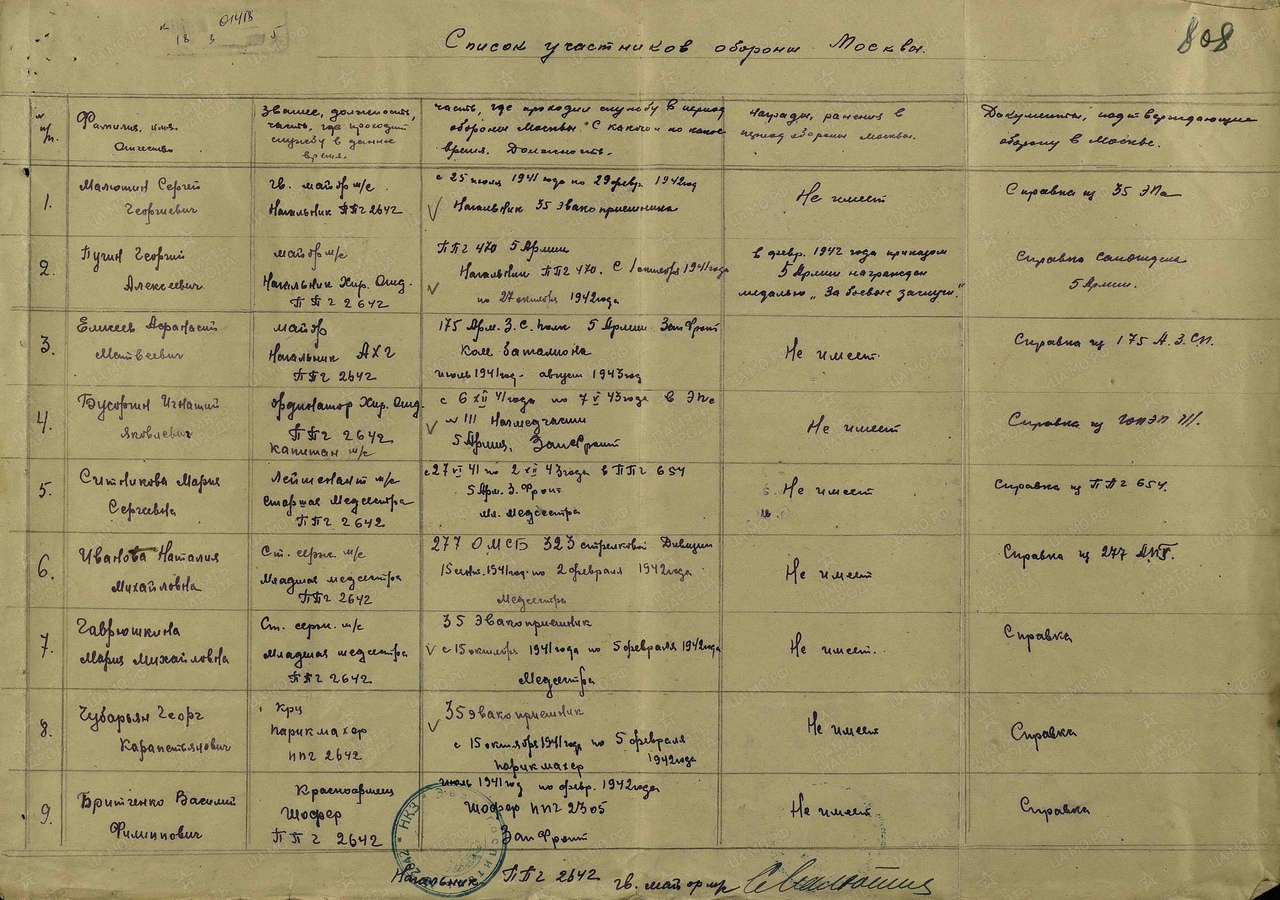 01418
18 3 5
808
Список участников обороны Москвы.
№ п/п.
Фамилия, имя, Отчество
Звание, должность, часть, где проходит службу в данное время.
часть, где проходил службу в период обороны Москвы. С какого и по какое время. Должность.
Награды, ранения в период обороны Москвы.
Документы, подтверждающие оборону в Москве.
1.
Малютин Сергей
Георгиевич
гв. майор м/с.
Начальник ППГ 2642
с 25 июля 1941 года по 29 февр. 1942 год
Начальник 35 эвакоприемника
Не имеет
Справка из 35 ЭПа
2.
Пучин Георгий
Алексеевич
майор м/с
Начальник Хир. Отд.
ППГ 2642
ППГ 470 5 Армии
Начальник ППГ 470. С 1 октября 1941 года
по 27 октября 1942 года
в февр. 1942 года приказом
5 Армии награжден
медалью „За боевые заслуги."
Справка
5 Армии.
3.
Еликеев Афанасий
Матвеевич
майор
Начальник АХЧ
ППГ 2642
175 Арм. З.С. полк 5 Армии Зап Фронт
Ком. баталиона
июль 1941 год - август 1943 год
Не имеет.
Справка из 175 А.З.СП.
4.
Бусоргин Игнатий
Яковлевич
ординатор Хир. Отд.
ППГ 2642
Капитан м/с
с 6 XII 41 года по 7 V 43 года в ЭПе
№ 111 Начмедчасти
5 Армия, Зап Фронт
Не имеет
Справка из 111.
5.
Ситникова Мария
Сергеевна
Лейтенант м/с
Старшая Медсестра
ППГ 2642
с 27 VI 41 по 2 XII 43 года в ППГ 654
5 Арм. З. Фронт
Мл. медсестра
Не имеет
Справка из ППГ 654.
6.
Иванова Наталия
Михайловна
Ст. серж. м/с
Младшая медсестра
ППГ 2642
277 ОМСБ 323 стрелковой Дивизии
15 сент. 1941 год. по 2 февраля 1942 года
Медсестра
Не имеет
Справка из 277
7.
Гаврюшкина
Мария Михайловна
Ст. серж. м/с
Младшая медсестра
ППГ 2642
35 Эвакоприемник
с 15 октября 1941 года по 5 февраля 1942 года
Медсестра
Не имеет.
Справка
8.
Чубарьян Георг
Карапетьянович
Кр-ц
Парикмахер
ППГ 2642
35 эвакоприемник
с 15 октября 1941 год по 5 февраля
1942 года
Парикмахер
Не имеет
Справка
9.
Бритченко Василий
Филиппович
Красноармеец
Шофер
ППГ 2642
июль 1941 год по февр. 1942 года
Шофер ППГ 2305
Зап Фронт
Не имеет
Справка
Начальник ППГ 2642 гв. майор м/с